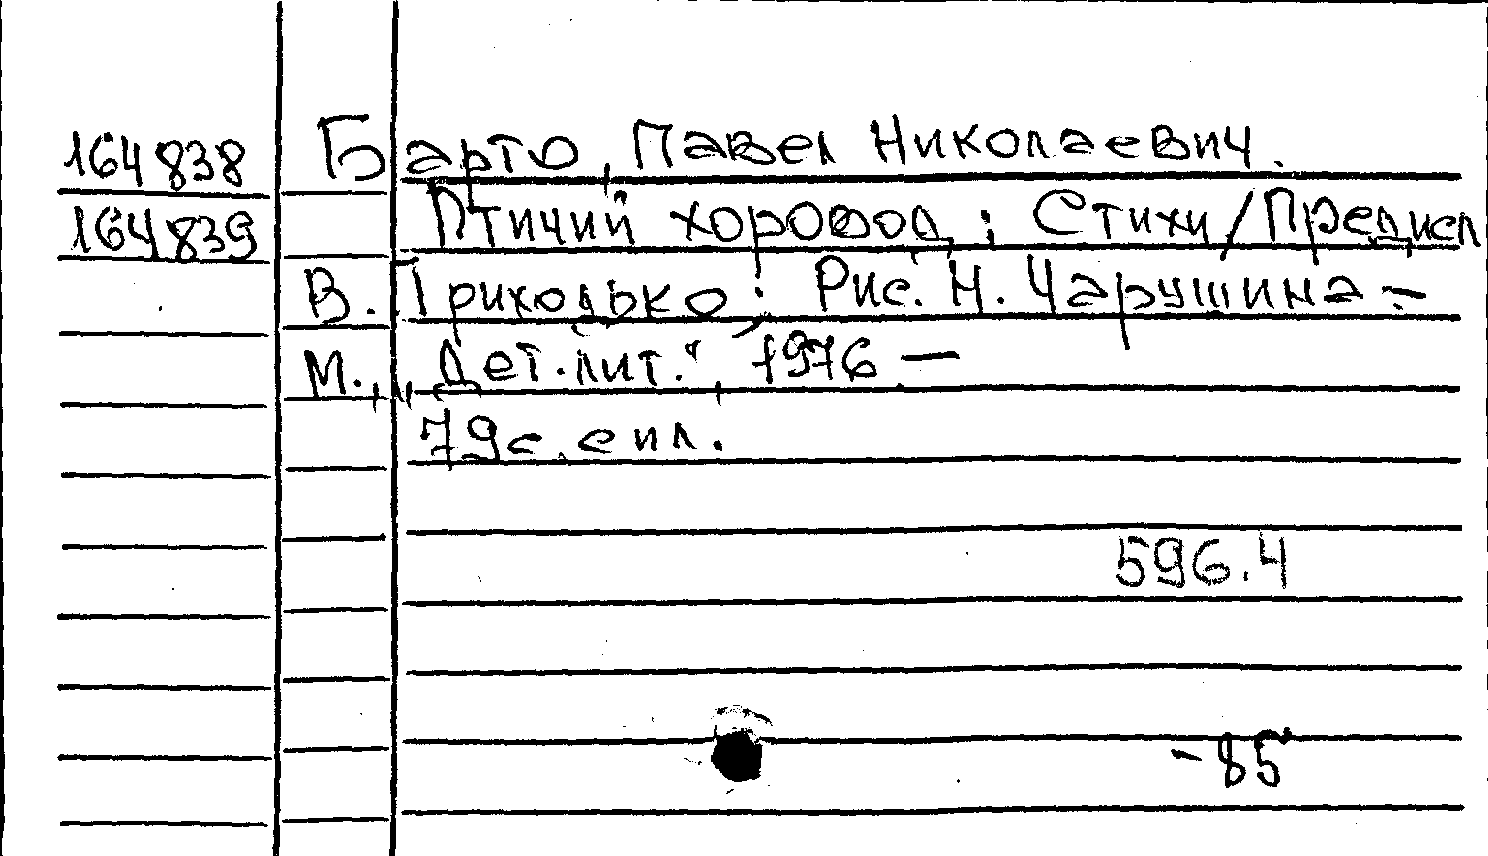 164838 Барто, Павел Николаевич.
164839 Птичий хоровод : Стихи/Предисл
В. Приходько; Рис. Н. Чарушина –
М., „Дет. лит.“, 1976 –
79с. с ил.
596.4
-85